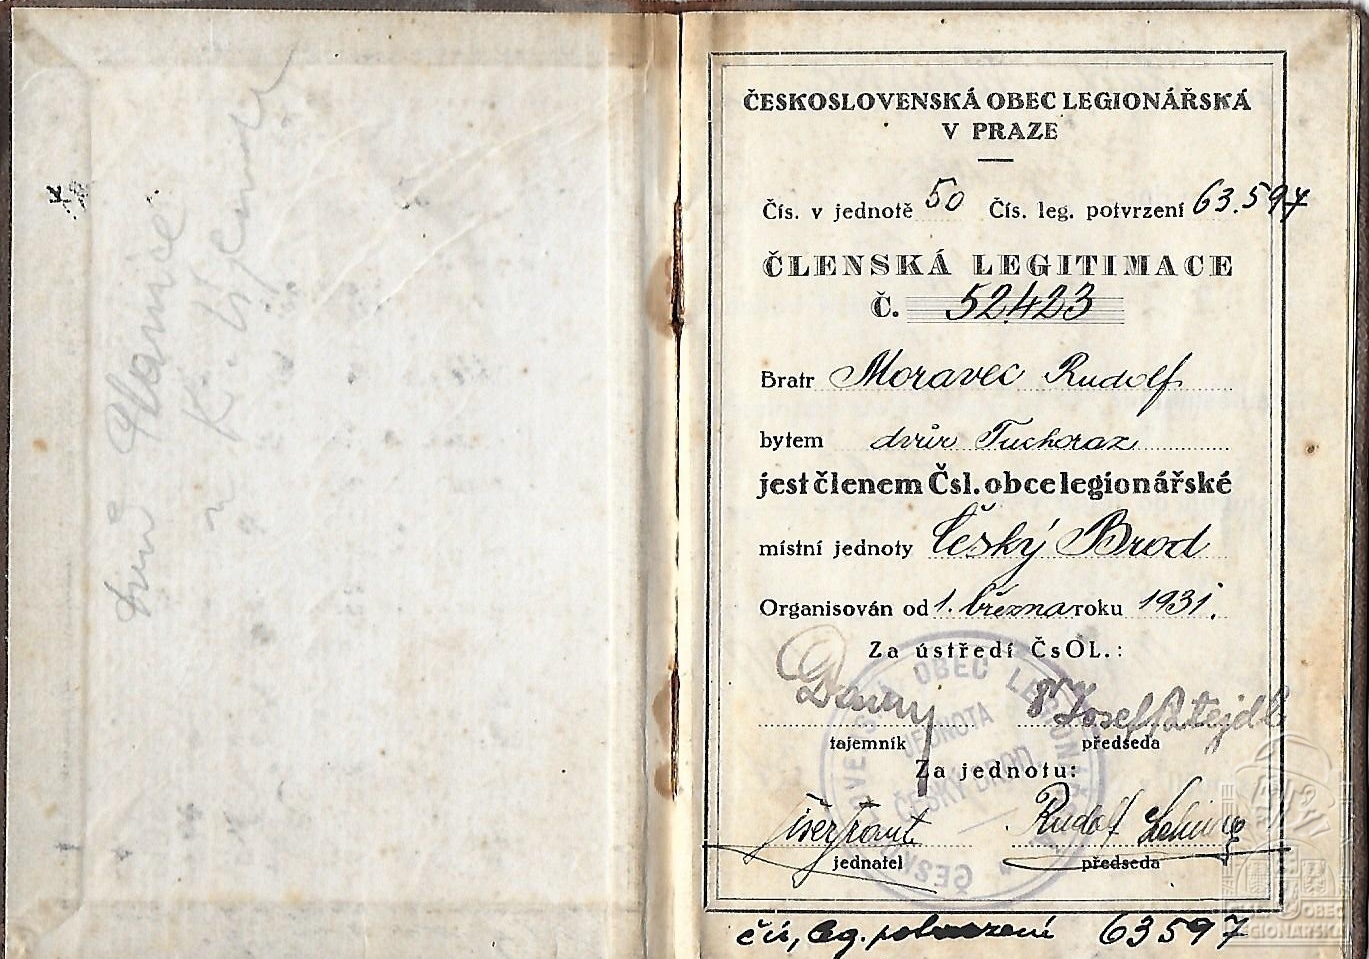 ČESKOSLOVENSKÁ OBEC LEGIONÁŘSKÁ
V PRAZE
Čís. v jednotě 50 Čís. leg. potvrzení 63.597
ČLENSKÁ LEGITIMACE
Č. 52423
Bratr Moravec Rudolf
bytem dvůr Tuchoraz
jest členem Čsl. obce legionářské
místní jednoty Český Brod
Organisován od 1. března roku 1931.
Za ústředí ČsOL.:
Josef Patejdl
tajemník předseda
Za jednotu:
Rudolf
jednatel předseda
OBEC
JEDNOTA
ČESKÝ BROD
čís, leg. potvrzení 63597
OBEC
LEGIONÁŘSKÁ